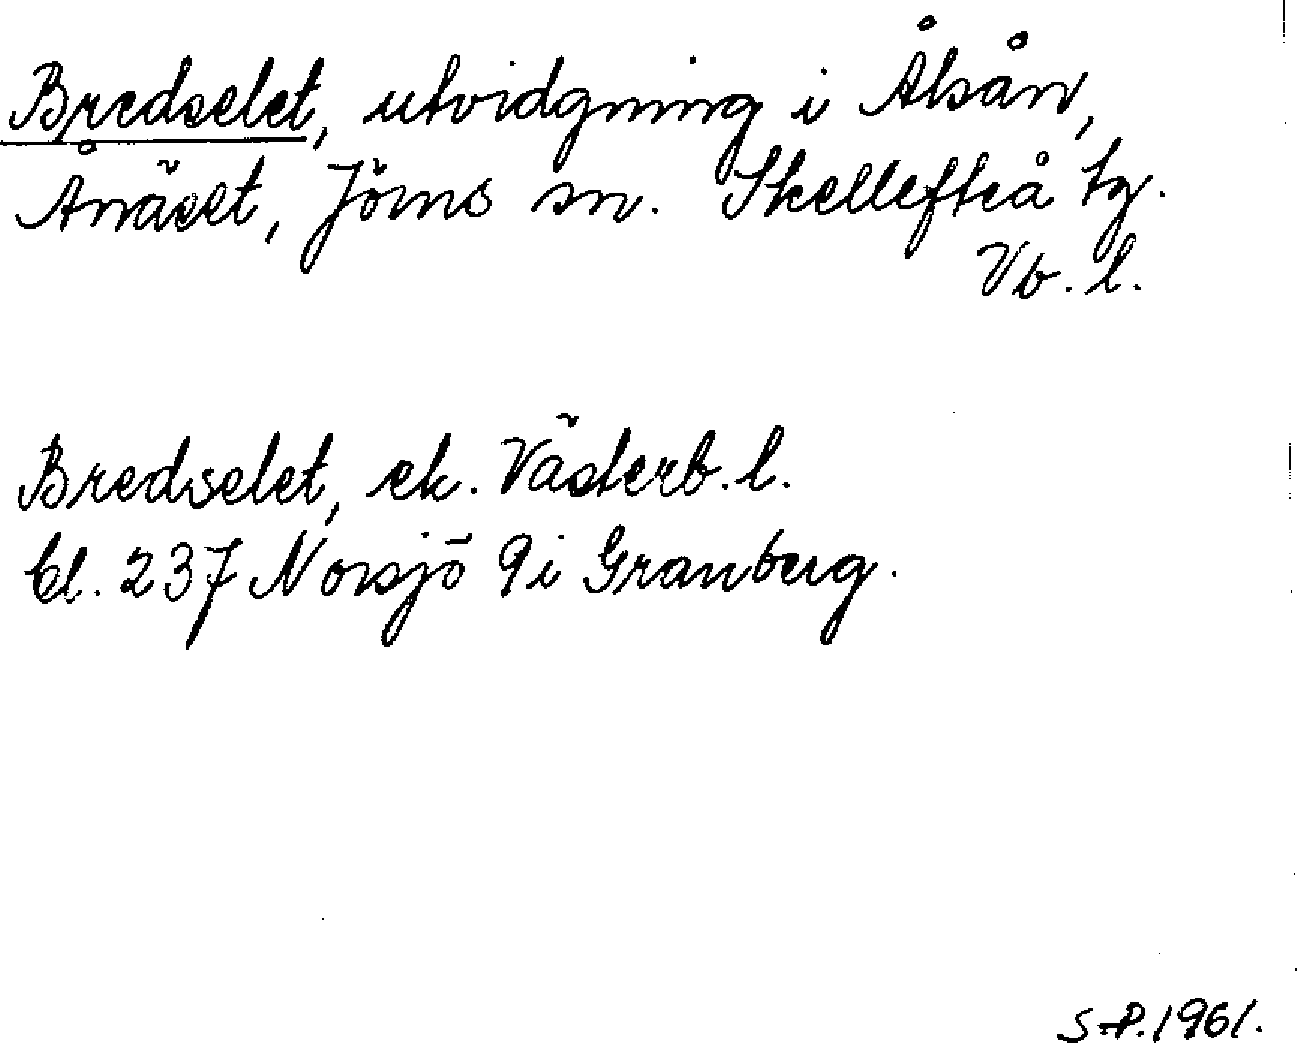 Bredselet, utvidgning i Ålsån,
Ånäset, Jörns sn. Skellefteå tg.
Vb. l.
Bredselet, ek. Västerb. l.
bl. 237 Norsjö 9i Granberg.
S-P. 1961.